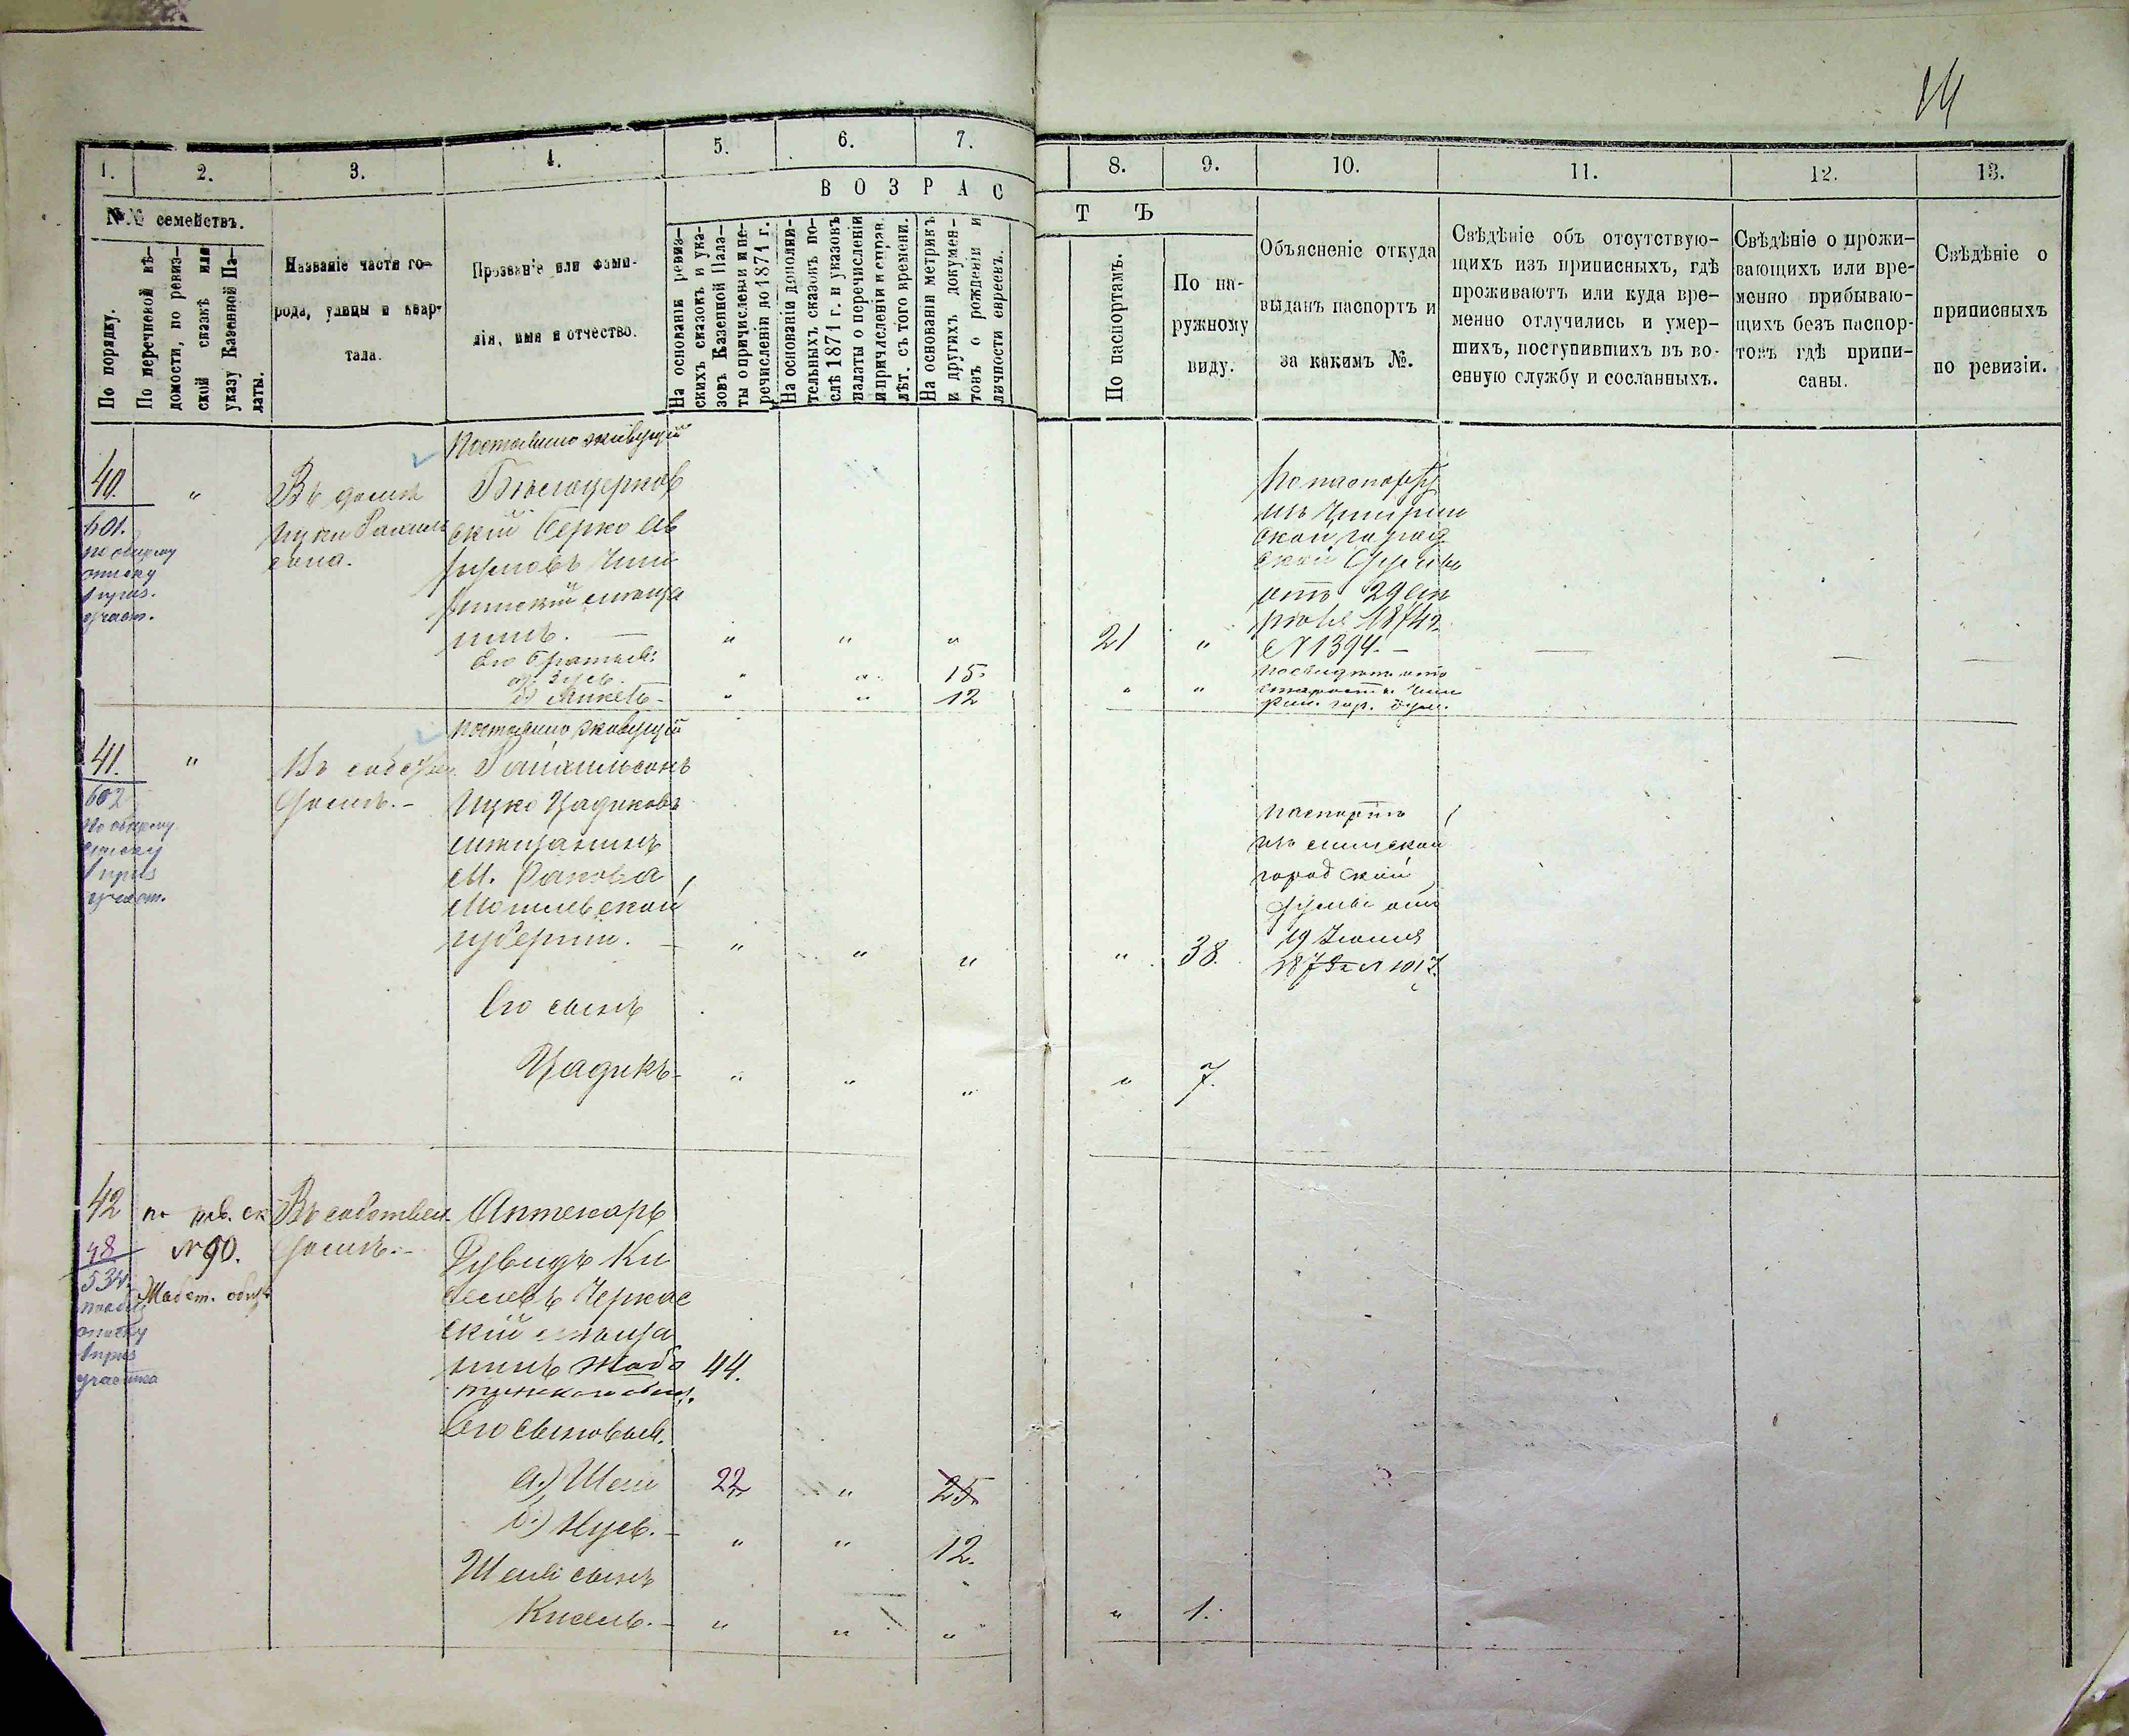 14
1. 2. 3. 4. 5. 6. 7. 8. 9. 10. 11. 12. 13.
ВОЗРАСТЪ
№№ семействъ.
По порядку.
По перечневой вѣ-
домости, по ревиз-
ской сказкѣ или
указу Казенной Па-
латы.
Названіе части го-
рода, улицы и квар-
тала.
Прозваніе или фами-
лія, имя и отчество.
На основаніи ревиз-
скихъ сказокъ и ука-
зовъ Казенной Пала-
ты о причисленіи и пе-
речисленіи до 1871 г.
На основаніи дополни-
тельныхъ сказокъ по-
слѣ 1871 г. и указовъ
палаты о перечисленіи
и причисленіи и справ.
лѣт. съ того времени.
На основаніи метрикъ
и другихъ докумен-
товъ о рожденіи и
личности евреевъ.
По паспортамъ.
По на-
ружному
виду.
Объясненіе откуда
выданъ паспортъ и
за какимъ №.
Свѣдѣніе объ отсутствую-
щихъ изъ приписныхъ, гдѣ
проживаютъ или куда вре-
менно отлучились и умер-
шихъ, поступившихъ въ во-
енную службу и сосланныхъ.
Свѣдѣніе о прожи-
вающихъ или вре-
менно прибываю-
щихъ безъ паспор-
товъ гдѣ припи-
саны.
Свѣдѣніе о
приписныхъ
по ревизіи.
40.
601.
по общему
списку
1 приз.
участ.
"
Въ домѣ
Ицки Рахиль
сона.
Постоянно живущій
Бѣлоцерков
скій Берко Ав
румовъ Чиги
ринскій мѣща
нинъ. — " " " 21 "
По паспорту
изъ Чигирин
ской город
ской Думы
отъ 29 Ап
рѣля 1874 г.
№ 1394. —
Его братья:
а) Зусь. " " 15.
б) Микель — " " 12 " "
41.
602
По общему
списку
1 приз
участ.
"
Въ собствен.
домѣ. —
Постоянно живущій
Ицко Цадиковъ
мѣщанинъ
м.
Могилевской
губерніи. — " " " " 38.
Паспортъ
изъ
городской
думы отъ
19 Іюня
№ 1017.
Его сынъ
Цадикъ — " " " " 7.
42
48
534.
списку
1 приз
участка
по рев. ск
№ 90.
Жабот. общ.
Въ собствен.
домѣ. —
Аптекарь
Рувидъ Ки
селевъ Черкас
скій мѣща
нинъ Жабо 44.
тинской общ.
Его сыновья.
а.) Шеи 22 " 25.
б.) Нусь. — " " 12.
сынъ
Кисель. — " " " " 1.